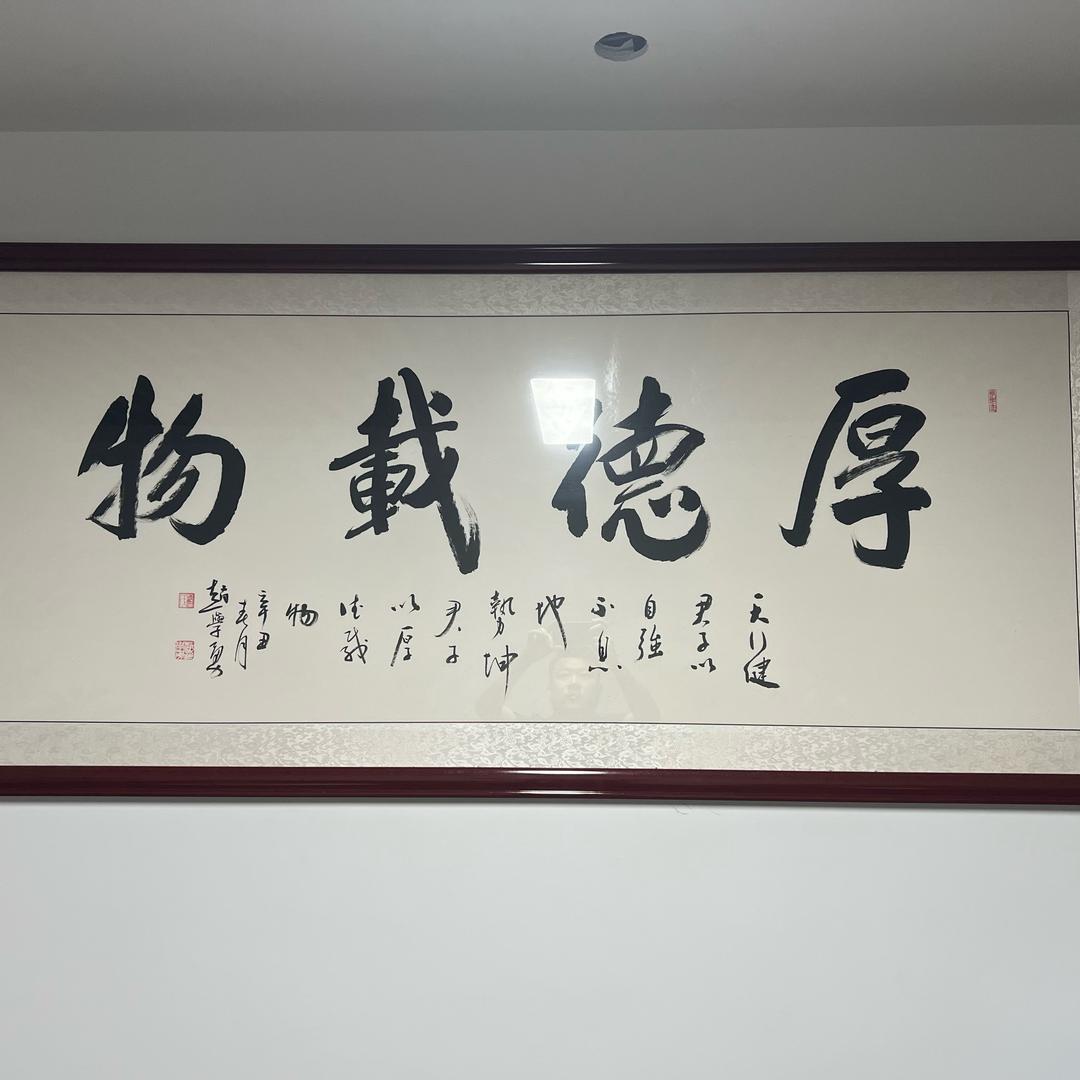 厚德載物
天行健
君子以
自強
不息
地
勢坤
君子
以厚
德載
物
辛丑
春月
趙學勇